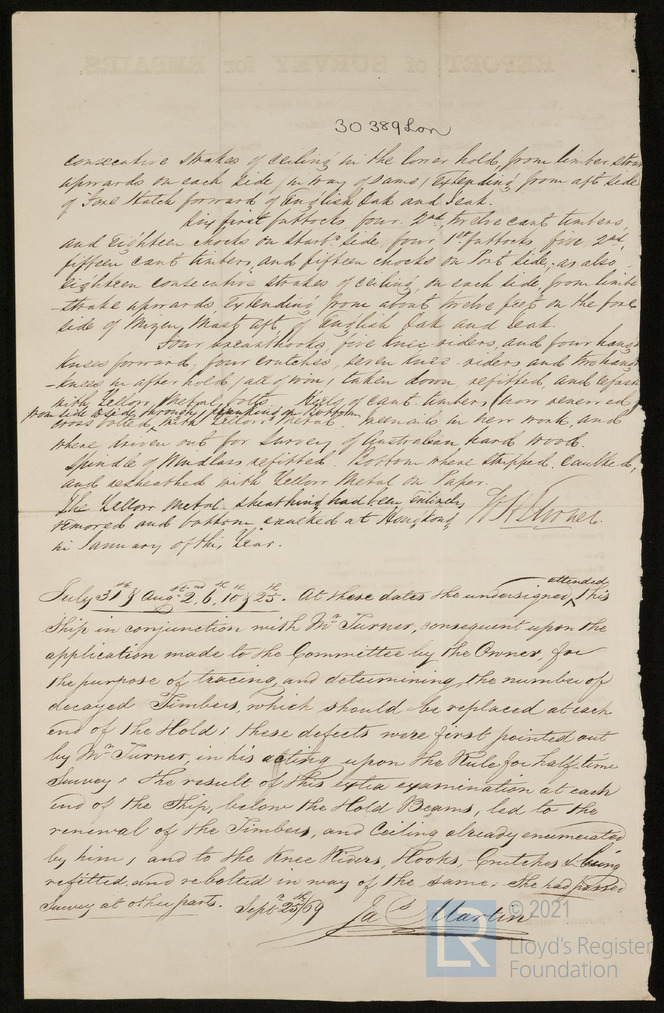 REPORT of SURVEY for REPAIRS.
30389 Lon
consecutive strakes of ceiling in the lower hold, from limber strake
upwards on each side, in way of same, Extending from aft side
of Fore Hatch forward of English Oak and Teak.
Six first futtocks four 2nd, twelve cant timbers,
and Eighteen chocks on Starbd side, four 1st futtocks, five 2nd,
fifteen cant timbers, and fifteen chocks on Port side; as also
Eighteen consecutive strakes of ceiling, on each side, from limber
-strake upwards, Extending from about twelve feet on the fore
side of Mizen Mast aft, of English Oak and Teak.
Four breasthooks, five knee riders, and four hang
knees forward, four crutches, seven knee riders and two hang
-knees in after hold, all of iron, taken down, refitted, and refast
with Yellow Metal bolts. Heels of cant timbers (now renewed)
from side to side through, planking on bottom,
cross bolted, with Yellow Metal. Treenails in new work, and
where driven out for survey of Australian hard wood.
Spindle of Windlass refitted. Bottom where stripped, caulked,
and resheathed with Yellow Metal on Paper.
The Yellow Metal sheathing had been entirely
removed and bottom caulked at Hongkong
in January of this Year.
W H Turner
July 31st & Augst 2nd, 6th, 10th & 25th. At these dates the undersigned attended this
Ship in conjunction with Mr Turner, consequent upon the
application made to the Committee by the Owner, for
the purpose of tracing, and determining the number of
decayed Timbers, which should be replaced at each
end of the Hold; these defects were first pointed out
by Mr Turner, in his acting upon the Rule for half-time
Survey; the result of this extra examination at each
end of the Ship, below the Hold Beams, led to the
renewal of the Timbers, and Ceiling already enumerated
by him; and to the Knee Riders, Hooks, Crutches & being
refitted and rebolted in way of the same; She had passed
Survey at other parts. Septr 25th/69
Jas Martin
© 2021
LR
Lloyd's Register
Foundation